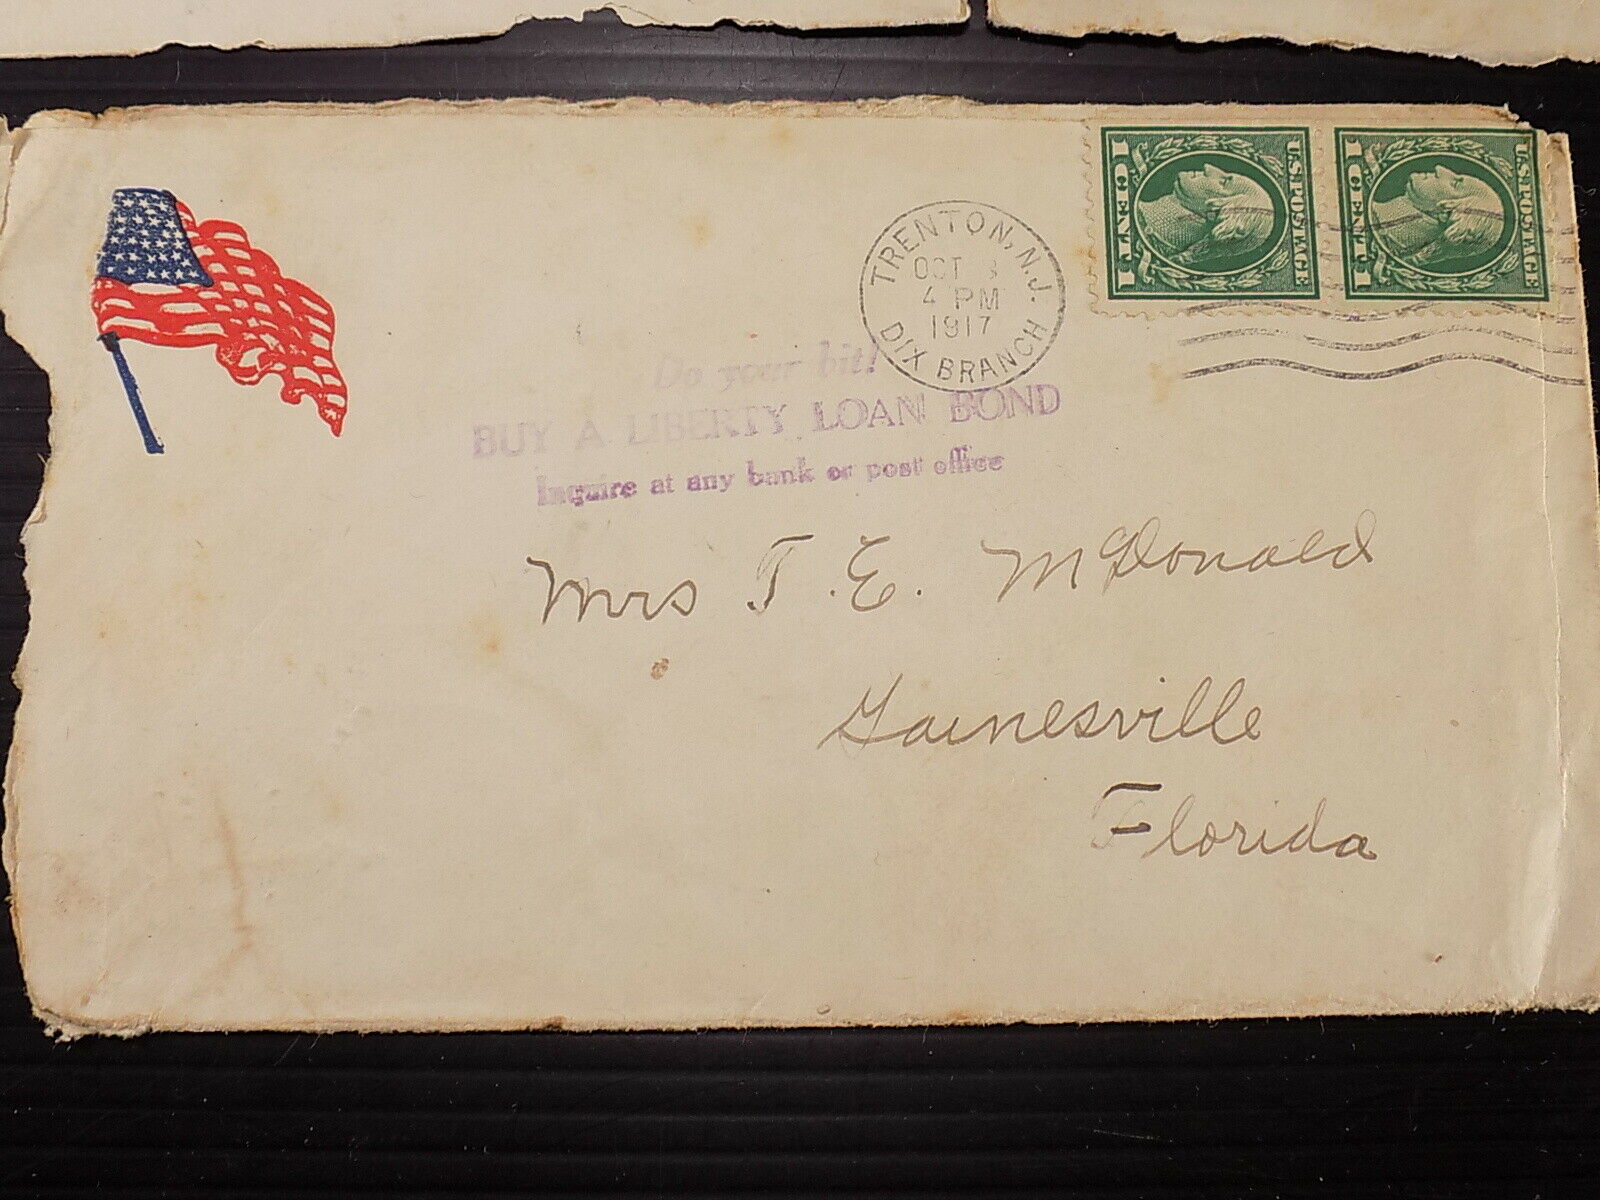 TRENTON, N.J.
OCT
4 PM
1917
DIX BRANCH
1 CENT 1
U.S. POSTAGE
1 CENT 1
U.S. POSTAGE
Do your bit!
BUY A LIBERTY LOAN BOND
Inquire at any bank or post office
Mrs T. E. McDonald
Gainesville
Florida